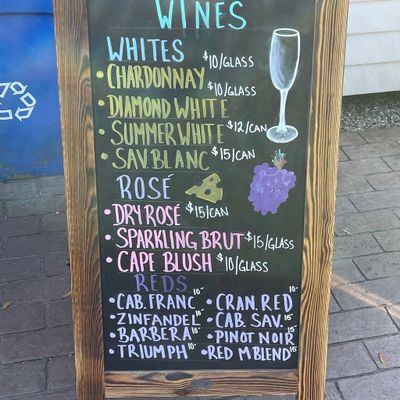 WINES
WHITES $10/GLASS
• CHARDONNAY $10/GLASS
• DIAMOND WHITE
• SUMMER WHITE $12/CAN
• SAV BLANC $15/CAN
ROSÉ
• DRY ROSÉ $15/CAN
• SPARKLING BRUT $15/GLASS
• CAPE BLUSH $10/GLASS
REDS
• CAB. FRANC 10- • CRAN. RED 10-
• ZINFANDEL 10- • CAB. SAV. 15-
• BARBERA 10- • PINOT NOIR 15-
• TRIUMPH 10- • RED M BLEND 15-